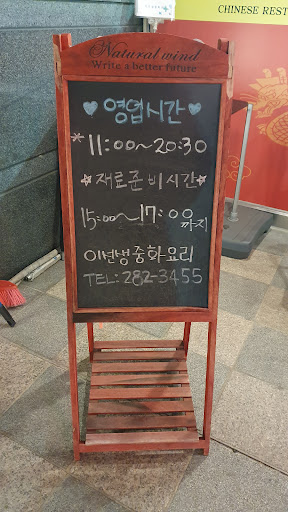 CHINESE REST
Natural wind
Write a better future
♥ 영엽시간 ♥
*11:00~20:30
☆재료준비시간☆
15:00~17:00까지
이년생중화요리
TEL: 282-3455